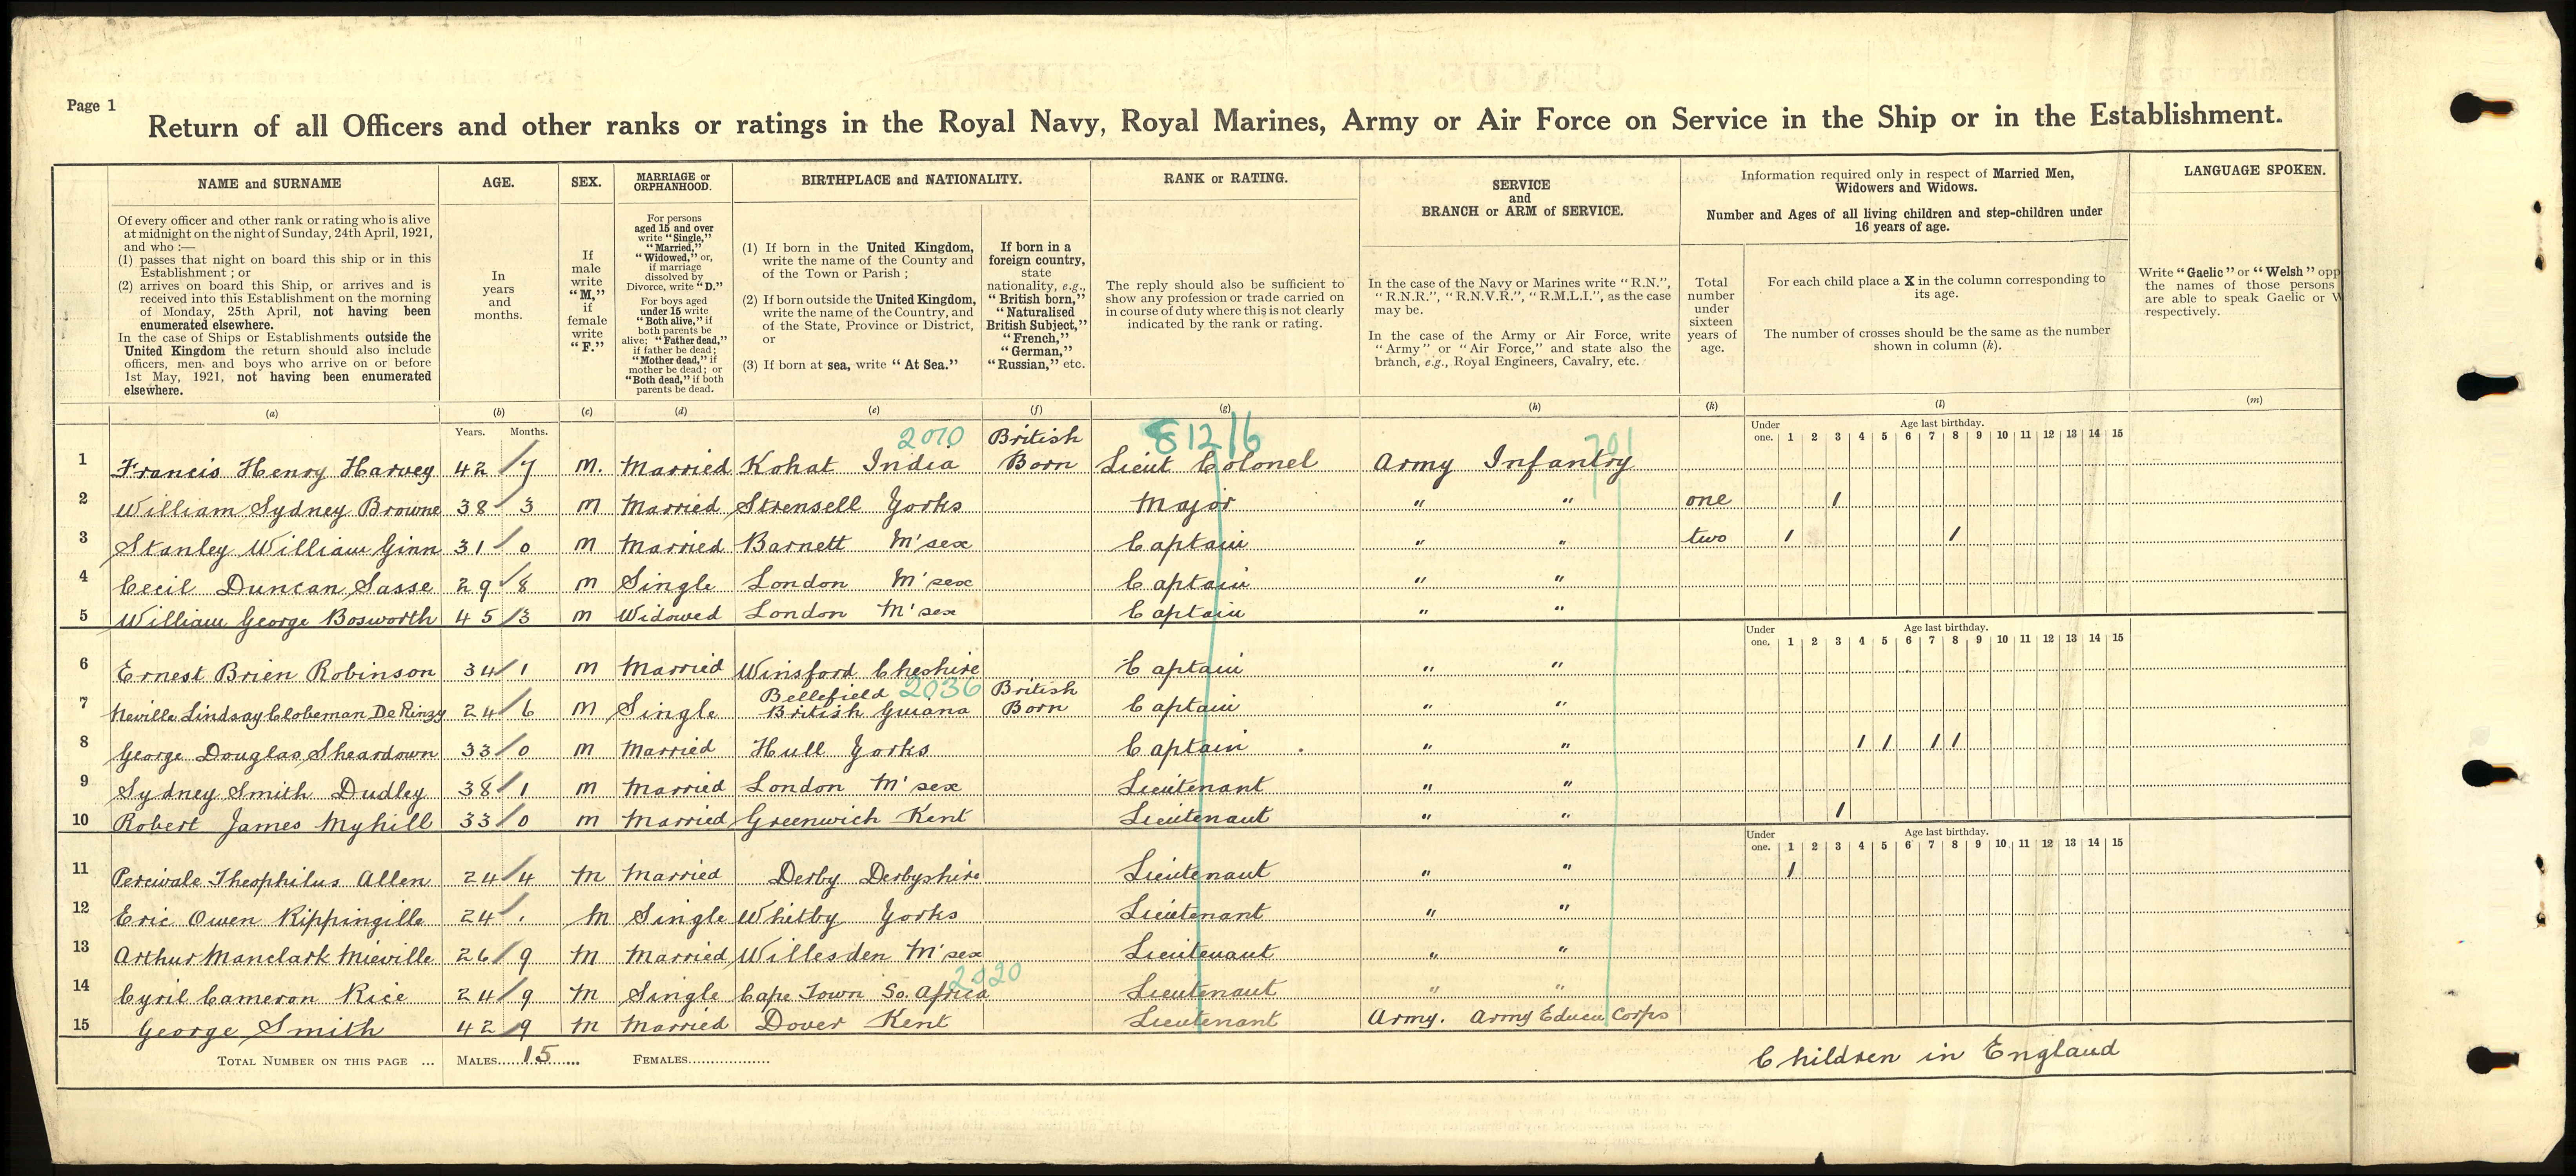 Page 1
Return of all Officers and other ranks or ratings in the Royal Navy, Royal Marines, Army or Air Force on Service in the Ship or in the Establishment.
NAME and SURNAME
Of every officer and other rank or rating who is alive
at midnight on the night of Sunday, 24th April, 1921,
and who :—
(1) passes that night on board this ship or in this
Establishment ; or
(2) arrives on board this Ship, or arrives and is
received into this Establishment on the morning
of Monday, 25th April, not having been
enumerated elsewhere.
In the case of Ships or Establishments outside the
United Kingdom the return should also include
officers, men and boys who arrive on or before
1st May, 1921, not having been enumerated
elsewhere.
(a)
AGE.
In
years
and
months.
(b)
Years. Months.
SEX.
If
male
write
"M,"
if
female
write
"F."
(c)
MARRIAGE or
ORPHANHOOD.
For persons
aged 15 and over
write "Single,"
"Married,"
"Widowed," or,
if marriage
dissolved by
Divorce, write "D."
For boys aged
under 15 write
"Both alive," if
both parents be
alive; "Father dead,"
if father be dead;
"Mother dead," if
mother be dead; or
"Both dead," if both
parents be dead.
(d)
BIRTHPLACE and NATIONALITY.
(1) If born in the United Kingdom,
write the name of the County and
of the Town or Parish ;
(2) If born outside the United Kingdom,
write the name of the Country, and
of the State, Province or District,
or
(3) If born at sea, write "At Sea."
(e)
If born in a
foreign country,
state
nationality, e.g.,
"British born,"
"Naturalised
British Subject,"
"French,"
"German,"
"Russian," etc.
(f)
RANK or RATING.
The reply should also be sufficient to
show any profession or trade carried on
in course of duty where this is not clearly
indicated by the rank or rating.
(g)
SERVICE
and
BRANCH or ARM of SERVICE.
In the case of the Navy or Marines write "R.N.",
"R.N.R.", "R.N.V.R.", "R.M.L.I.", as the case
may be.
In the case of the Army or Air Force, write
"Army" or "Air Force," and state also the
branch, e.g., Royal Engineers, Cavalry, etc.
(h)
Information required only in respect of Married Men,
Widowers and Widows.
Number and Ages of all living children and step-children under
16 years of age.
Total
number
under
sixteen
years of
age.
(k)
For each child place a X in the column corresponding to
its age.
The number of crosses should be the same as the number
shown in column (k).
(l)
LANGUAGE SPOKEN.
Write "Gaelic" or "Welsh" opp
the names of those persons
are able to speak Gaelic or W
respectively.
(m)
Under one. Age last birthday. 1 2 3 4 5 6 7 8 9 10 11 12 13 14 15
2010 British 812/6 701
1 Francis Henry Harvey 42/7 M. Married Kohat India Born Lieut Colonel Army Infantry
2 William Sydney Browne 38/3 M Married Strensell Yorks Major " " one 1
3 Stanley William Ginn 31/0 M Married Barnett M'sex Captain " " two 1 1
4 Cecil Duncan Sasse 29/8 M Single London M'sex Captain " "
5 William George Bosworth 45/3 M Widowed London M'sex Captain " "
Under one. Age last birthday. 1 2 3 4 5 6 7 8 9 10 11 12 13 14 15
6 Ernest Brien Robinson 34/1 M Married Winsford Cheshire Captain " "
Bellefield 2036 British
7 Neville Lindsay Clobeman De Rinzy 24/6 M Single British Guiana Born Captain " "
8 George Douglas Sheardown 33/0 M Married Hull Yorks Captain " " 1 1 1 1
9 Sydney Smith Dudley 38/1 M Married London M'sex Lieutenant " "
10 Robert James Myhill 33/0 M Married Greenwich Kent Lieutenant " " 1
Under one. Age last birthday. 1 2 3 4 5 6 7 8 9 10 11 12 13 14 15
11 Percivale Theophilus Allen 24/4 M Married Derby Derbyshire Lieutenant " " 1
12 Eric Owen Kippingille 24/. M Single Whitby Yorks Lieutenant " "
13 Arthur Manclark Mieville 26/9 M Married Willesden M'sex Lieutenant " "
2020
14 Cyril Cameron Rice 24/9 M Single Cape Town So. Africa Lieutenant " "
15 George Smith 42/9 M Married Dover Kent Lieutenant Army. Army Educn Corps
TOTAL NUMBER ON THIS PAGE ... MALES.....15..... FEMALES..................
Children in England